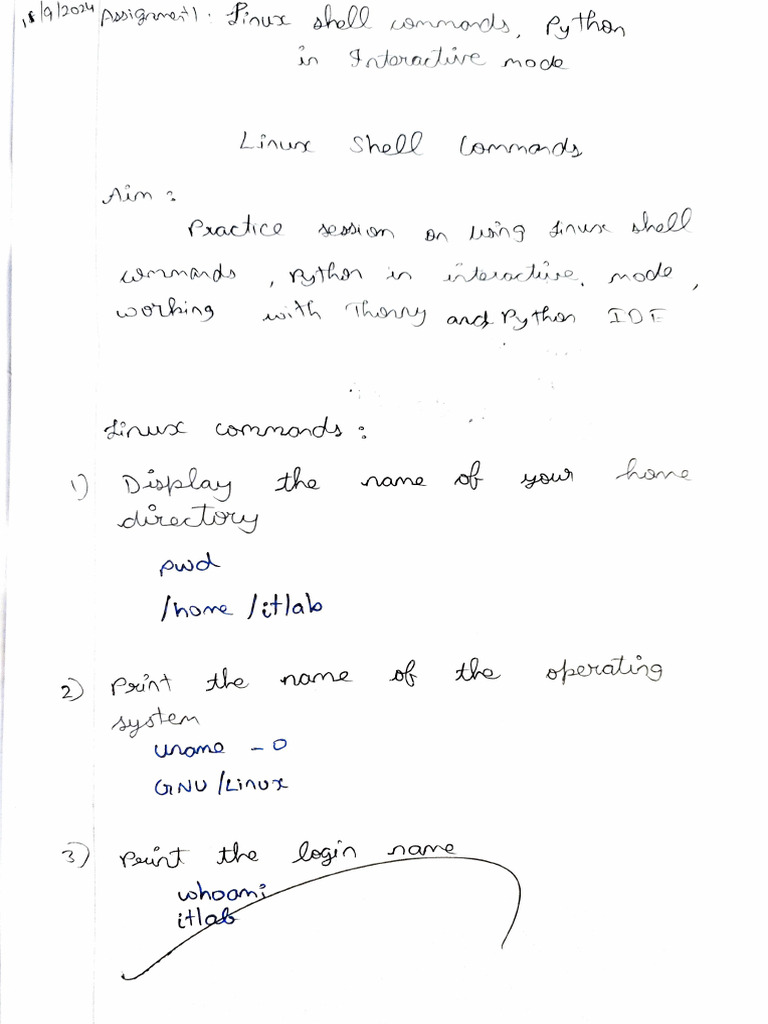 18/9/2024 Assignment 1: Linux shell commands, Python
in Interactive mode
Linux Shell Commands
Aim:
Practice session on using Linux shell
commands, Python in interactive mode,
working with Thonny and Python IDE
Linux commands:
1) Display the name of your home
directory
pwd
/home/itlab
2) Print the name of the operating
system
uname -o
GNU/Linux
3) Print the login name
whoami
itlab